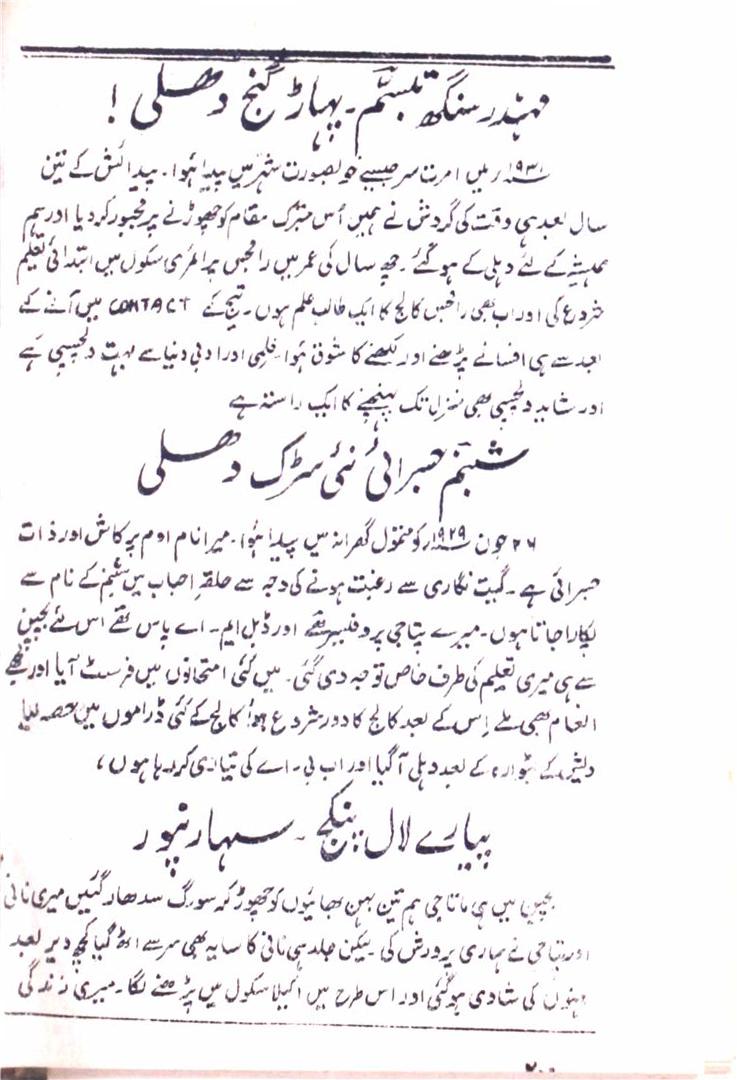 مہندر سنگھ تبسّم۔ پہاڑ گنج دھلی !
۱۹۳۱ء میں امرت سر جیسے خوبصورت شہر میں پیدا ہوا۔ پیدائش کے تین
سال بعد ہی وقت کی گردش نے ہمیں اُس متبرک مقام کو چھوڑنے پر مجبور کر دیا اور ہم
ہمیشہ کے لئے دہلی کے ہو گئے۔ چھ سال کی عمر میں رامجس پرائمری سکول میں ابتدائی تعلیم
شروع کی اور اب بھی رامجس کالج کا ایک طالب علم ہوں۔ تیج کے CONTACT میں آنے کے
بعد سے ہی افسانے پڑھنے اور لکھنے کا شوق ہوا۔ فلمی اور ادبی دنیا سے بہت دلچسپی ہے
اور شاید دلچسپی بھی منزل تک پہنچنے کا ایک راستہ ہے
شبنم جبرائی نئی سڑک دھلی
۲۶ جون ۱۹۲۹ء کو متمول گھرانہ میں پیدا ہوا۔ میرا نام اوم پرکاش اور ذات
جبرائی ہے۔ گیت نگاری سے رغبت ہونے کی وجہ سے حلقہ احباب میں شبنم کے نام سے
پکارا جاتا ہوں۔ میرے پتا جی پروفیسر تھے اور ڈبل ایم۔ اے پاس تھے اس لئے بچپن
سے ہی میری تعلیم کی طرف خاص توجہ دی گئی۔ میں کئی امتحانوں میں فرسٹ آیا اور مجھے
انعام بھی ملے اِس کے بعد کالج کا دور شروع ہوا۔ کالج کے کئی ڈراموں میں حصہ لیا
دیش کے بٹوارہ کے بعد دہلی آ گیا اور اب بی۔ اے کی تیاری کر رہا ہوں،
پیارے لال پنکج ۔ سہارنپور
بچپن میں ہی ماتا جی ہم تین بہن بھائیوں کو چھوڑ کر سورگ سدھار گئیں میری نانی
اور پتا جی نے ہماری پرورش کی۔ لیکن جلد ہی نانی کا سایہ بھی سر سے اٹھ گیا کچھ دیر بعد
بہنوں کی شادی ہو گئی اور اس طرح میں اکیلا سکول میں پڑھنے لگا۔ میری زندگی